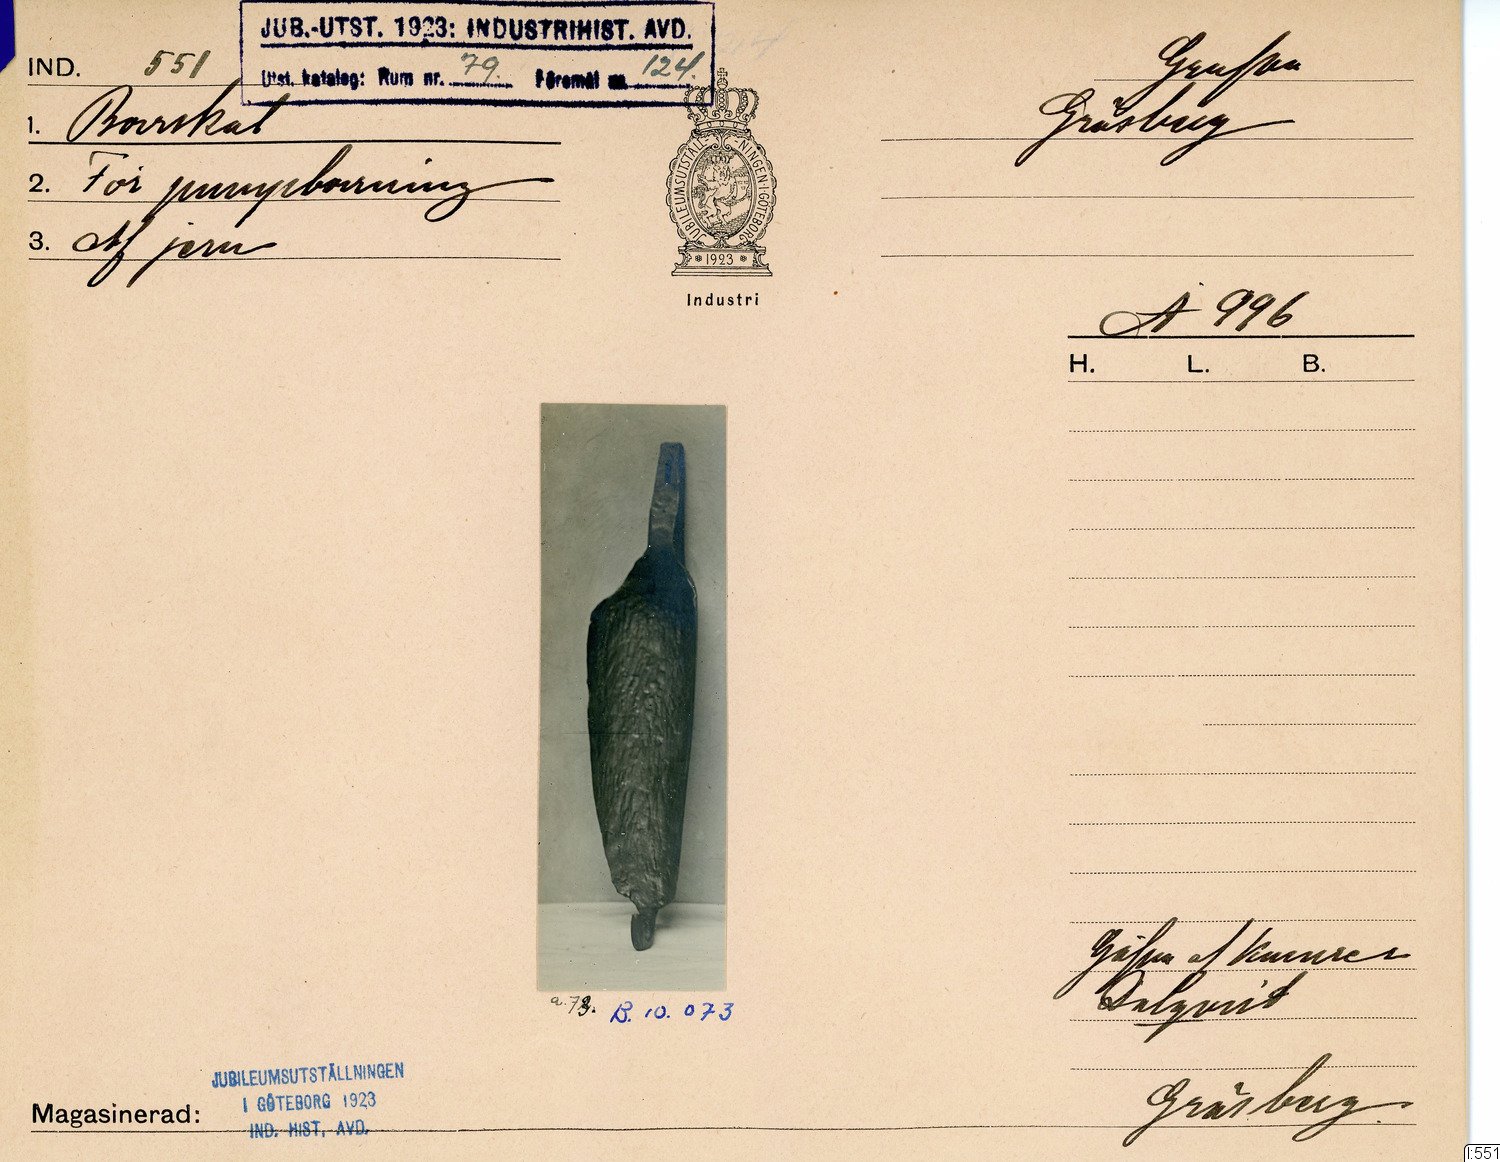 JUB.-UTST. 1923: INDUSTRIHIST. AVD.
Utst. katalog: Rum nr. 79. Föremål nr. 124.
IND. 551
1. Borrskal
2. För pumpborrning
3. Af jern
JUBILEUMSUTSTÄLLNINGEN I GÖTEBORG
1923
Industri
Gräsberg
A 996
H. L. B.
a.73.
B. 10. 073
Gåfva af
Dalqvist
Gräsberg
JUBILEUMSUTSTÄLLNINGEN
I GÖTEBORG 1923
IND. HIST. AVD.
Magasinerad:
I:551